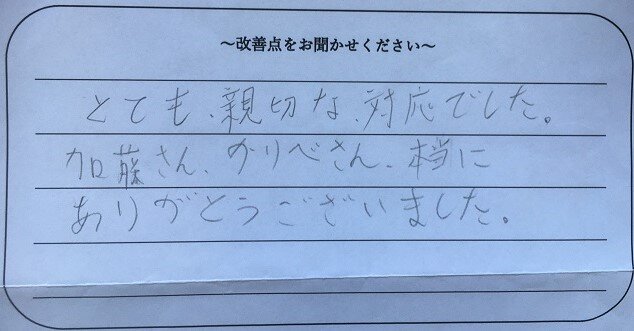 ～改善点をお聞かせください～
とても、親切な、対応でした。
加藤さん、かりべさん、本当に
ありがとうございました。